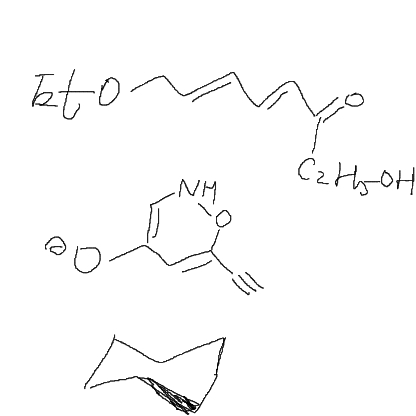 EtO
O
C2H5-OH
NH
O
⊖ O